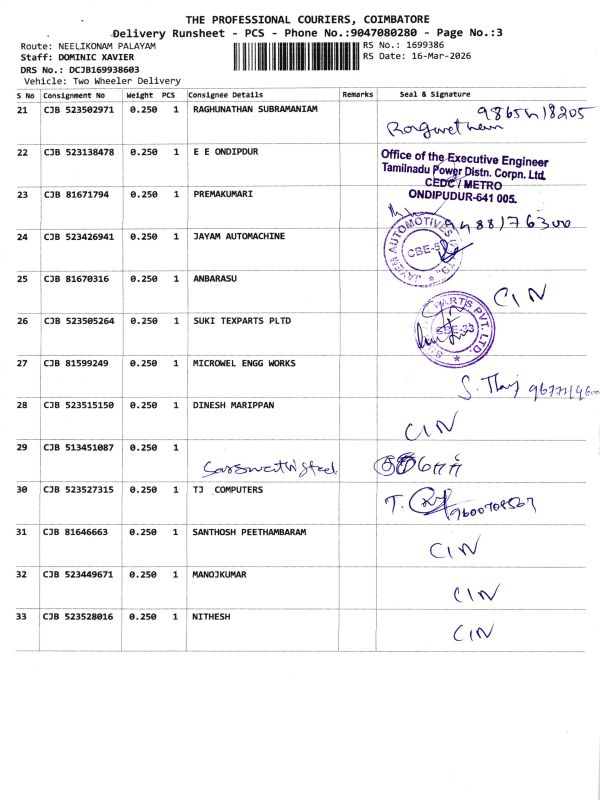 THE PROFESSIONAL COURIERS, COIMBATORE
Delivery Runsheet - PCS - Phone No.:9047080280 - Page No.:3
Route: NEELIKONAM PALAYAM
RS No.: 1699386
Staff: DOMINIC XAVIER
RS Date: 16-Mar-2026
DRS No.: DCJB169938603
Vehicle: Two Wheeler Delivery
S No Consignment No Weight PCS Consignee Details Remarks Seal & Signature
21 CJB 523502971 0.250 1 RAGHUNATHAN SUBRAMANIAM
22 CJB 523138478 0.250 1 E E ONDIPDUR
Office of the Executive Engineer
Tamilnadu Power Distn. Corpn. Ltd.
CEDC / METRO
ONDIPUDUR-641 005.
23 CJB 81671794 0.250 1 PREMAKUMARI
9488176300
24 CJB 523426941 0.250 1 JAYAM AUTOMACHINE
25 CJB 81670316 0.250 1 ANBARASU CIN
26 CJB 523505264 0.250 1 SUKI TEXPARTS PLTD
27 CJB 81599249 0.250 1 MICROWEL ENGG WORKS
28 CJB 523515150 0.250 1 DINESH MARIPPAN CIN
29 CJB 513451087 0.250 1
30 CJB 523527315 0.250 1 TJ COMPUTERS
31 CJB 81646663 0.250 1 SANTHOSH PEETHAMBARAM CIN
32 CJB 523449671 0.250 1 MANOJKUMAR CIN
33 CJB 523528016 0.250 1 NITHESH CIN